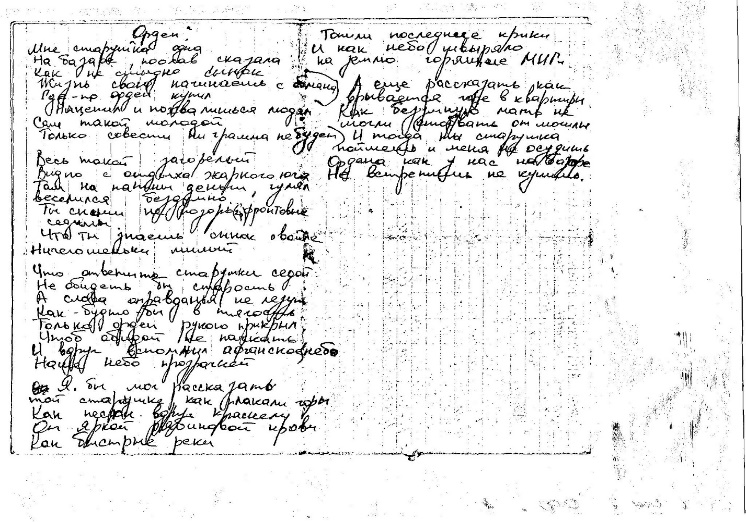 Орден
Мне старушка одна
На базаре, поохав сказала
Как не стыдно сынок
Жизнь свою начинаешь с обмана
Где-то орден купил
Нацепил и похвалишься людям
Сам такой молодой
Только совести ни грамма не будет
Весь такой загорелый
Видно с отдыха жаркого юга
Там на папины деньги гулял
веселился бездумно
Ты сними не позорь фронтовые
седины
Что ты знаешь сынок о войне
Ничегошеньки милый
Что ответить старушке седой
Не обидеть бы старость
А слова оправданья не лезут
Как-будто бы в тягость
Только орден рукою прикрыл
Чтоб обидой не пачкать
И вдруг вспомнил афганское небо
Наше небо прозрачней
Я бы мог рассказать
той старушке как плакали горы
Как песок вдруг краснел
От яркой рябиновой крови
Как быстрые реки
Топили последние крики
И как небо швыряло
на землю горящие МИГи
А еще рассказать как
врывается горе в квартиры
Как безумную мать не
могли оторвать от могилы
И тогда ты старушка
поймешь и меня не осудишь
Ордена как у нас на базаре
Не встретишь не купишь.